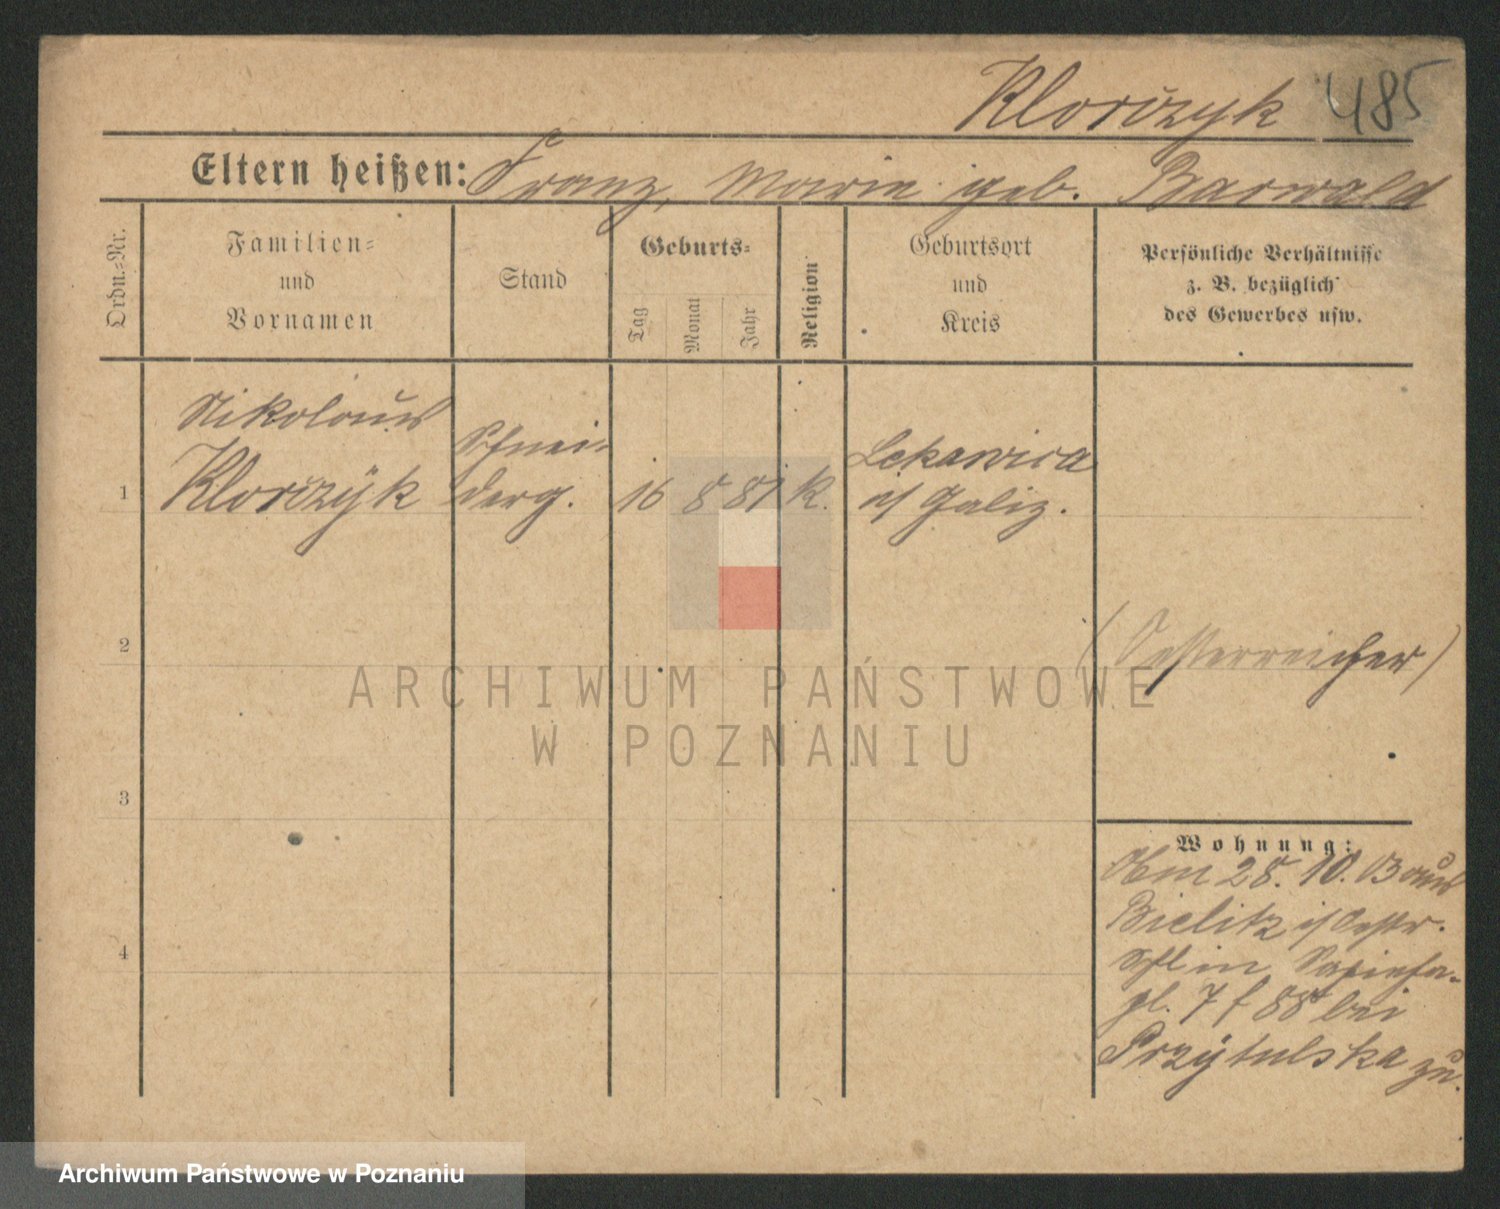 Klorczyk 485
Eltern heißen: Franz, Marie geb. Barwald
Ordn.=Nr.
Familien=
und
Vornamen
Stand
Geburts=
Tag
Monat
Jahr
Religion
Geburtsort
und
Kreis
Persönliche Verhältnisse
z. B. bezüglich
des Gewerbes usw.
Nikolaus
Klorczyk
Schnei-
derg.
1
16 8 81 K.
Lekawica
i/ Galiz.
2
(Oesterreicher)
3
Wohnung:
Am 28. 10. 03 aus
Bielitz i/ Oestr.
in
pl. 7 f 88 bei
Przytulska zu.
4
ARCHIWUM PAŃSTWOWE
W POZNANIU
Archiwum Państwowe w Poznaniu